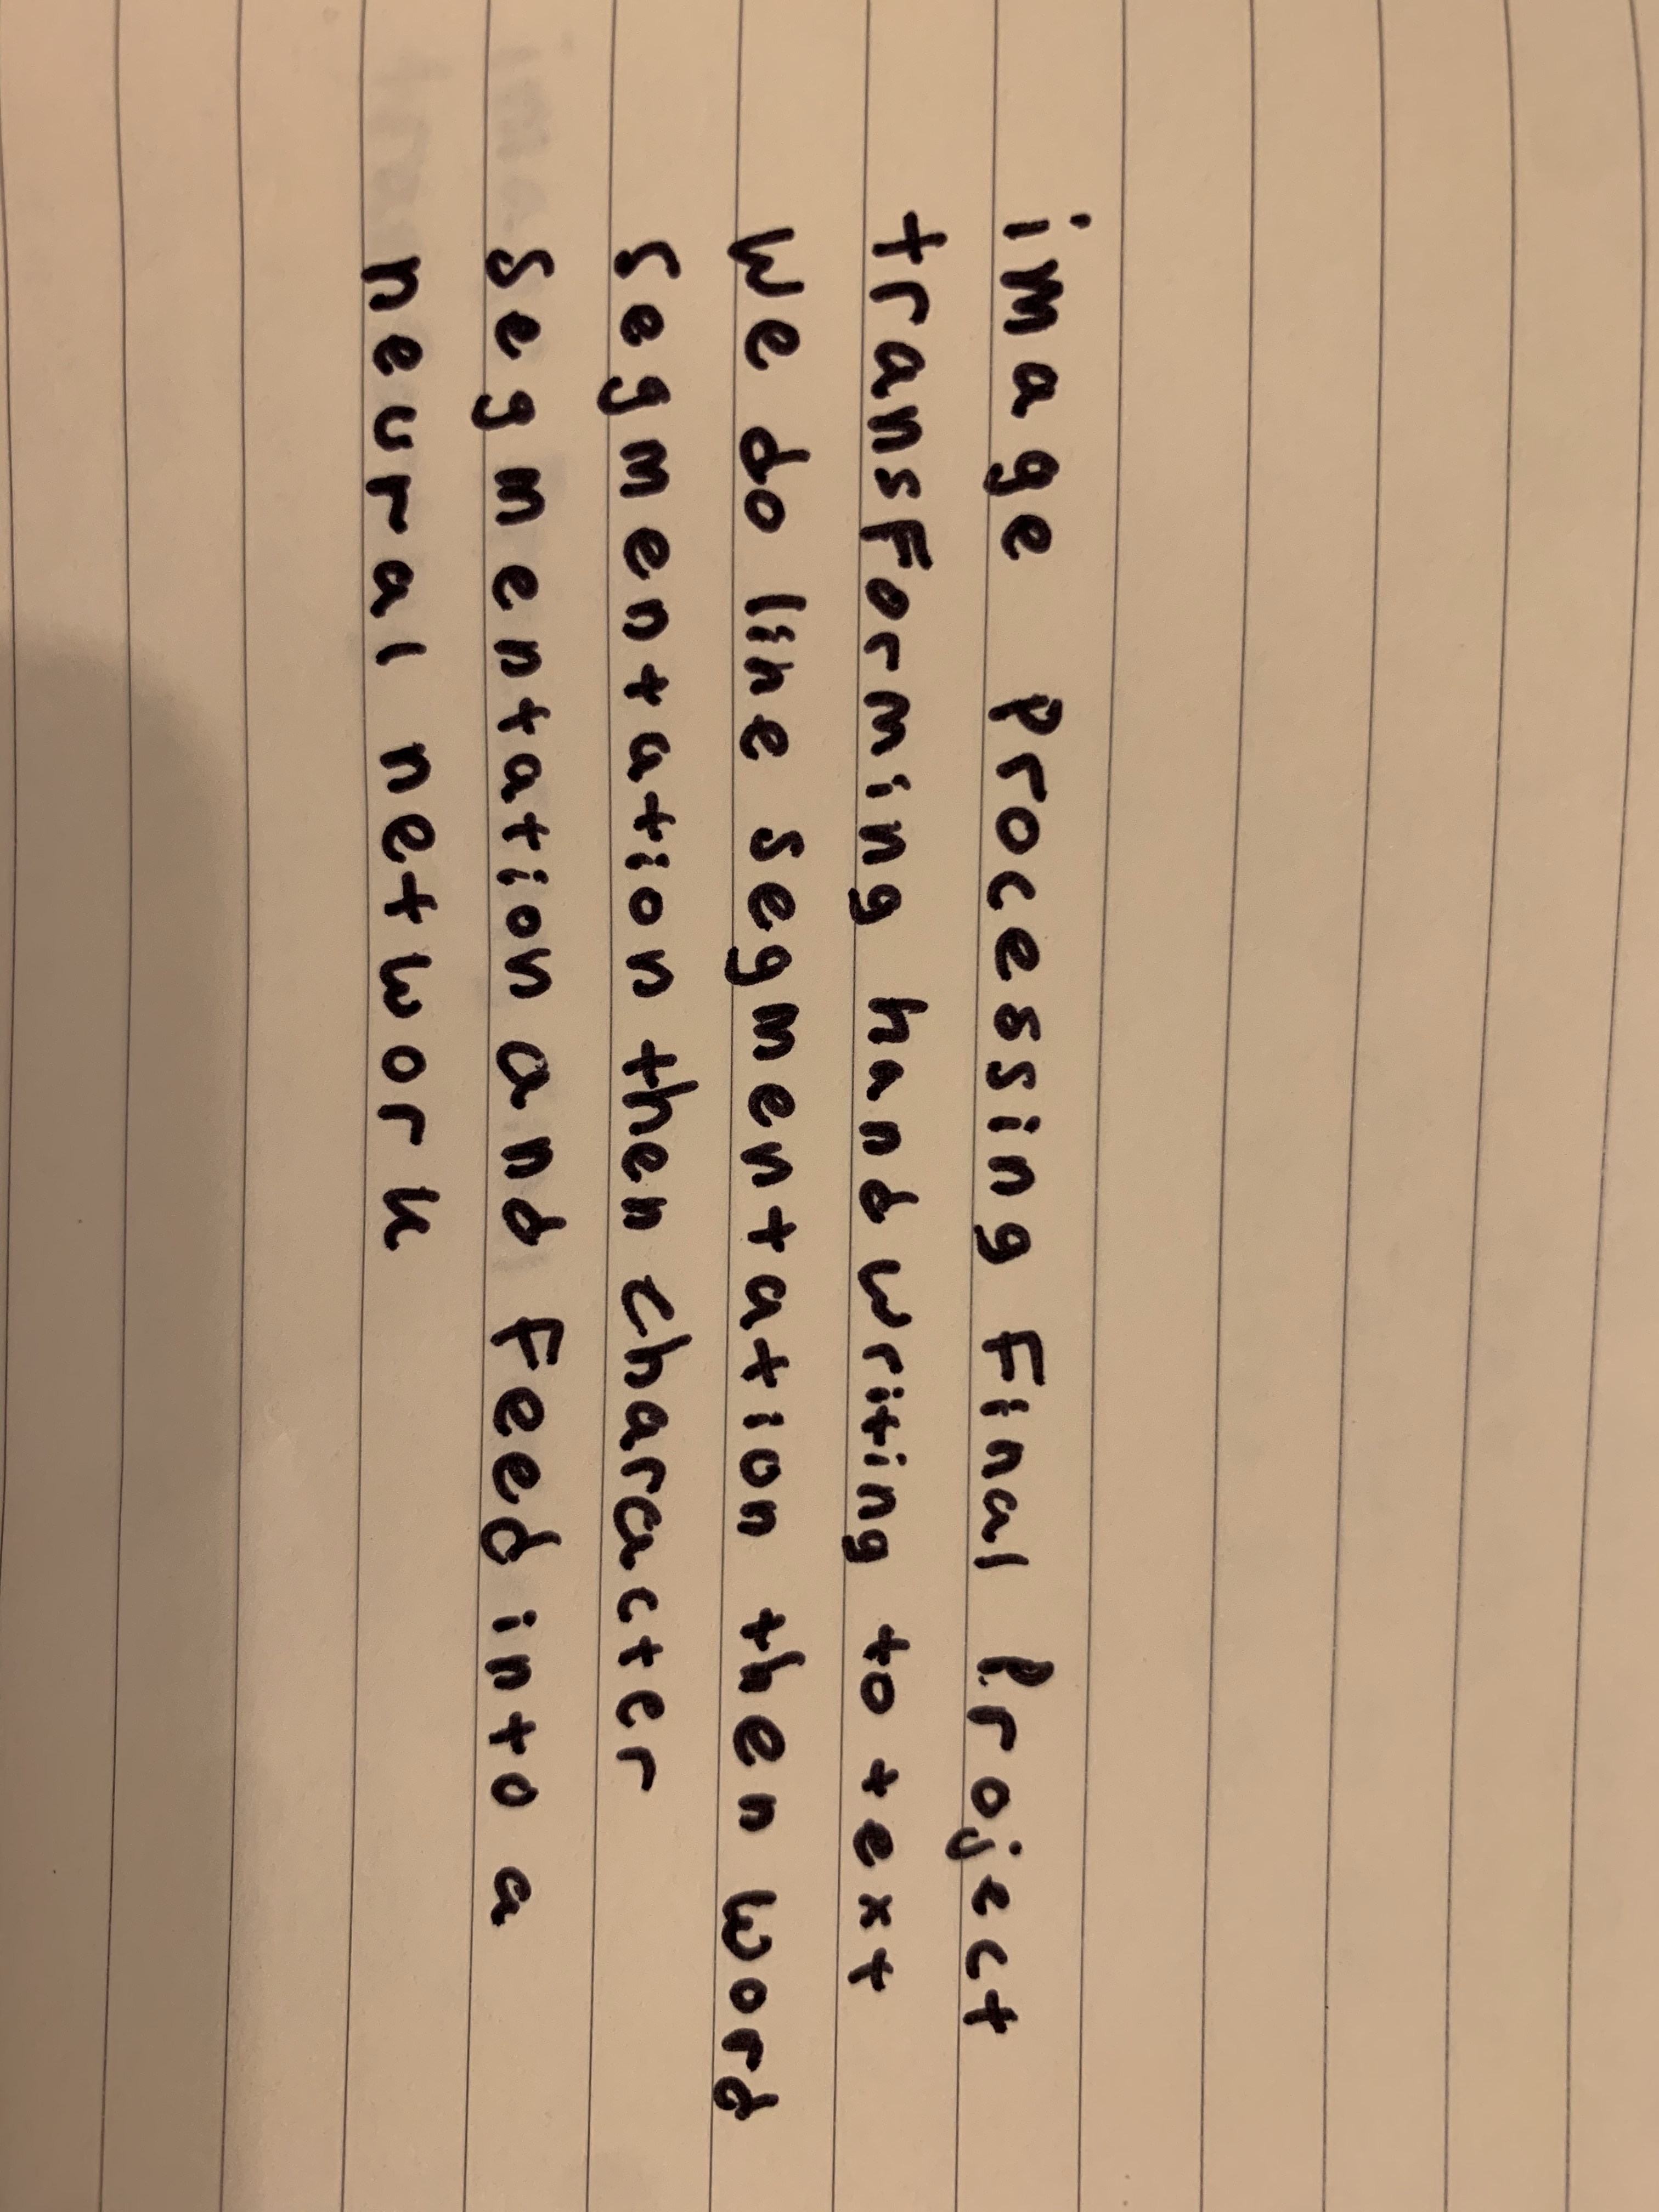 image processing Final Project
transForming handwriting to text
We do line segmentation then word
Segmentation then character
Segmentation and Feed into a
neural network